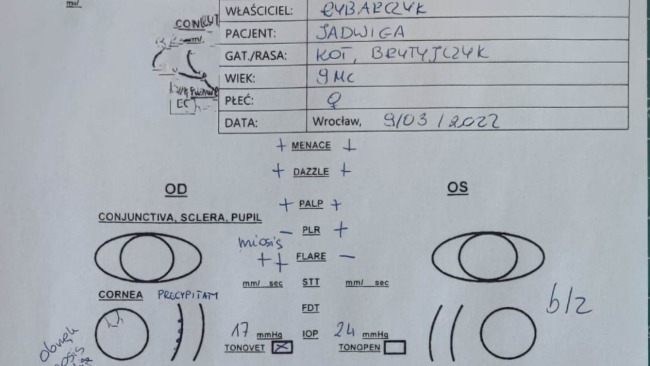 WŁAŚCICIEL: RYBARCZYK
PACJENT: JADWIGA
GAT./RASA: KOT, BRYTYJCZYK
WIEK: 9 MC
PŁEĆ: ♀
DATA: Wrocław, 9/03/2022
+ MENACE +
+ DAZZLE +
OD
OS
+ PALP +
CONJUNCTIVA, SCLERA, PUPIL
- PLR +
miosis
++ FLARE -
mm/ sec STT mm/ sec
CORNEA PRECYPITATY
FDT
b/z
17 mmHg IOP 24 mmHg
TONOVET TONOPEN
obrzęk